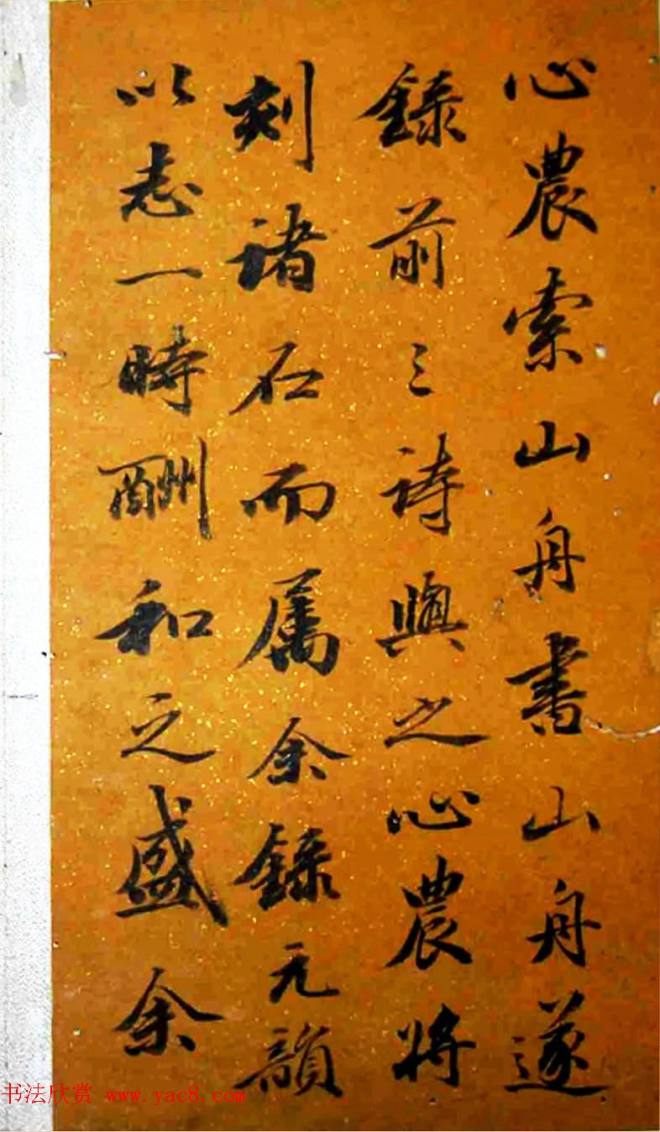 心農索山舟書山舟遂
錄前三詩與之心農将
刻诸石而属余錄元韻
以志一時酬和之盛余
书法欣赏 www.yac8.com